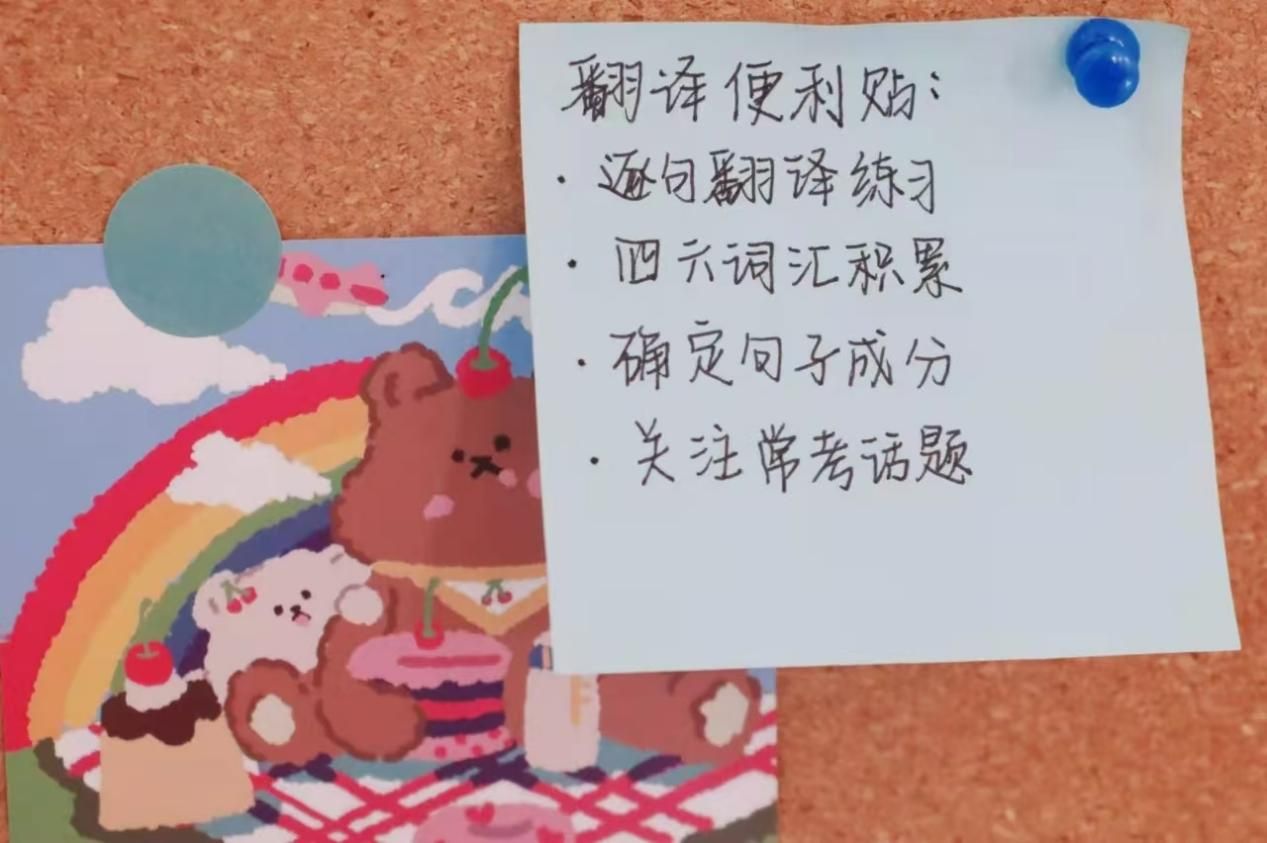 翻译便利贴：
· 逐句翻译练习
· 四六词汇积累
· 确定句子成分
· 关注常考话题